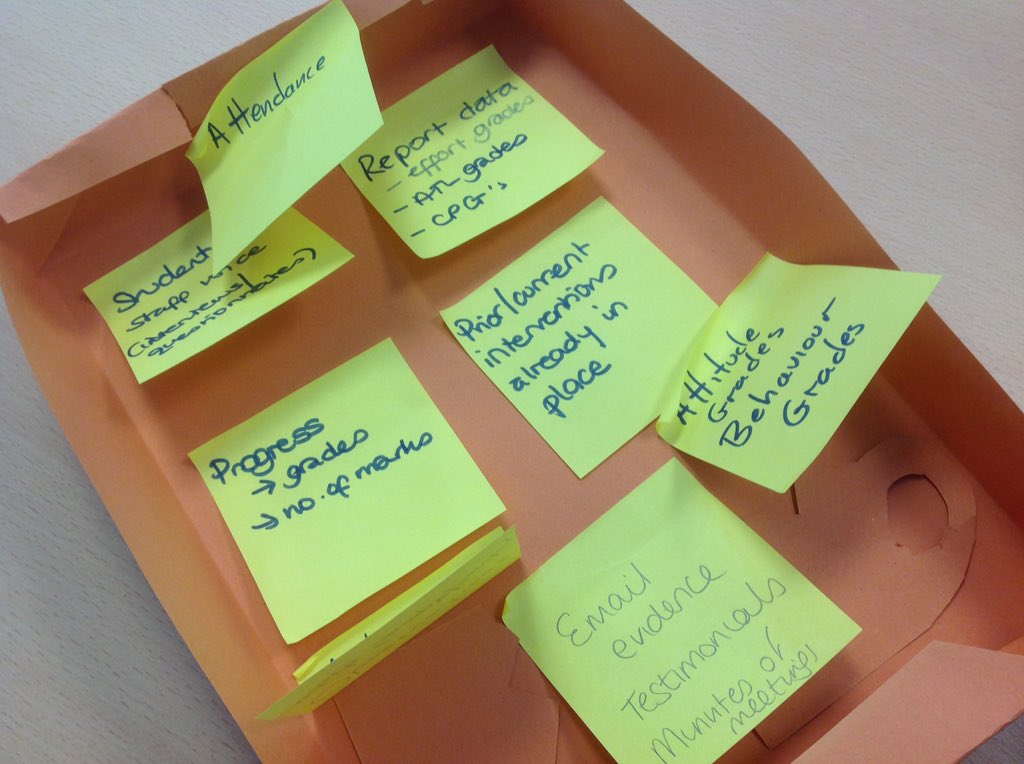 Attendance
Report data
- effort grades
- ATL grades
- CPG's
Student
Staff voice
(interviews/
questionnaires)
Prior/current
interventions
already in
place
Attitude
Grades
Behaviour
Grades
Progress
→ grades
→ no. of marks
Email
evidence
Testimonials
Minutes of
meetings